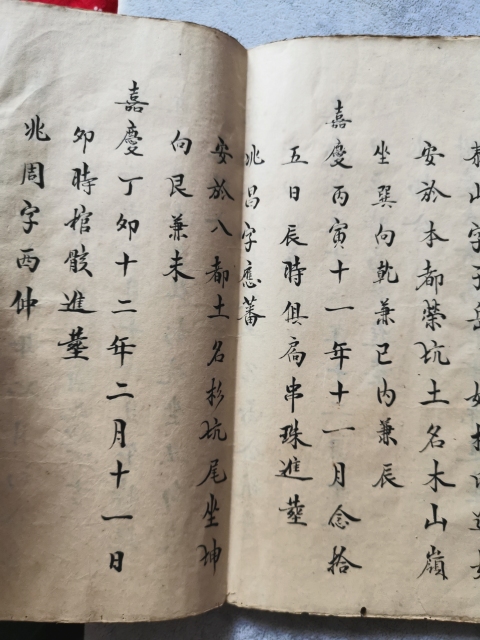 山字子
安於本都榮坑土名木山嶺
坐巽向乾兼已内兼辰
嘉慶丙寅十一年十一月念拾
五日辰時俱扃串珠進葬
兆昌字應蕃
安於八都土名杉坑尾坐坤
向艮兼未
嘉慶丁卯十二年二月十一日
卯時棺骸進葬
兆周字西仲